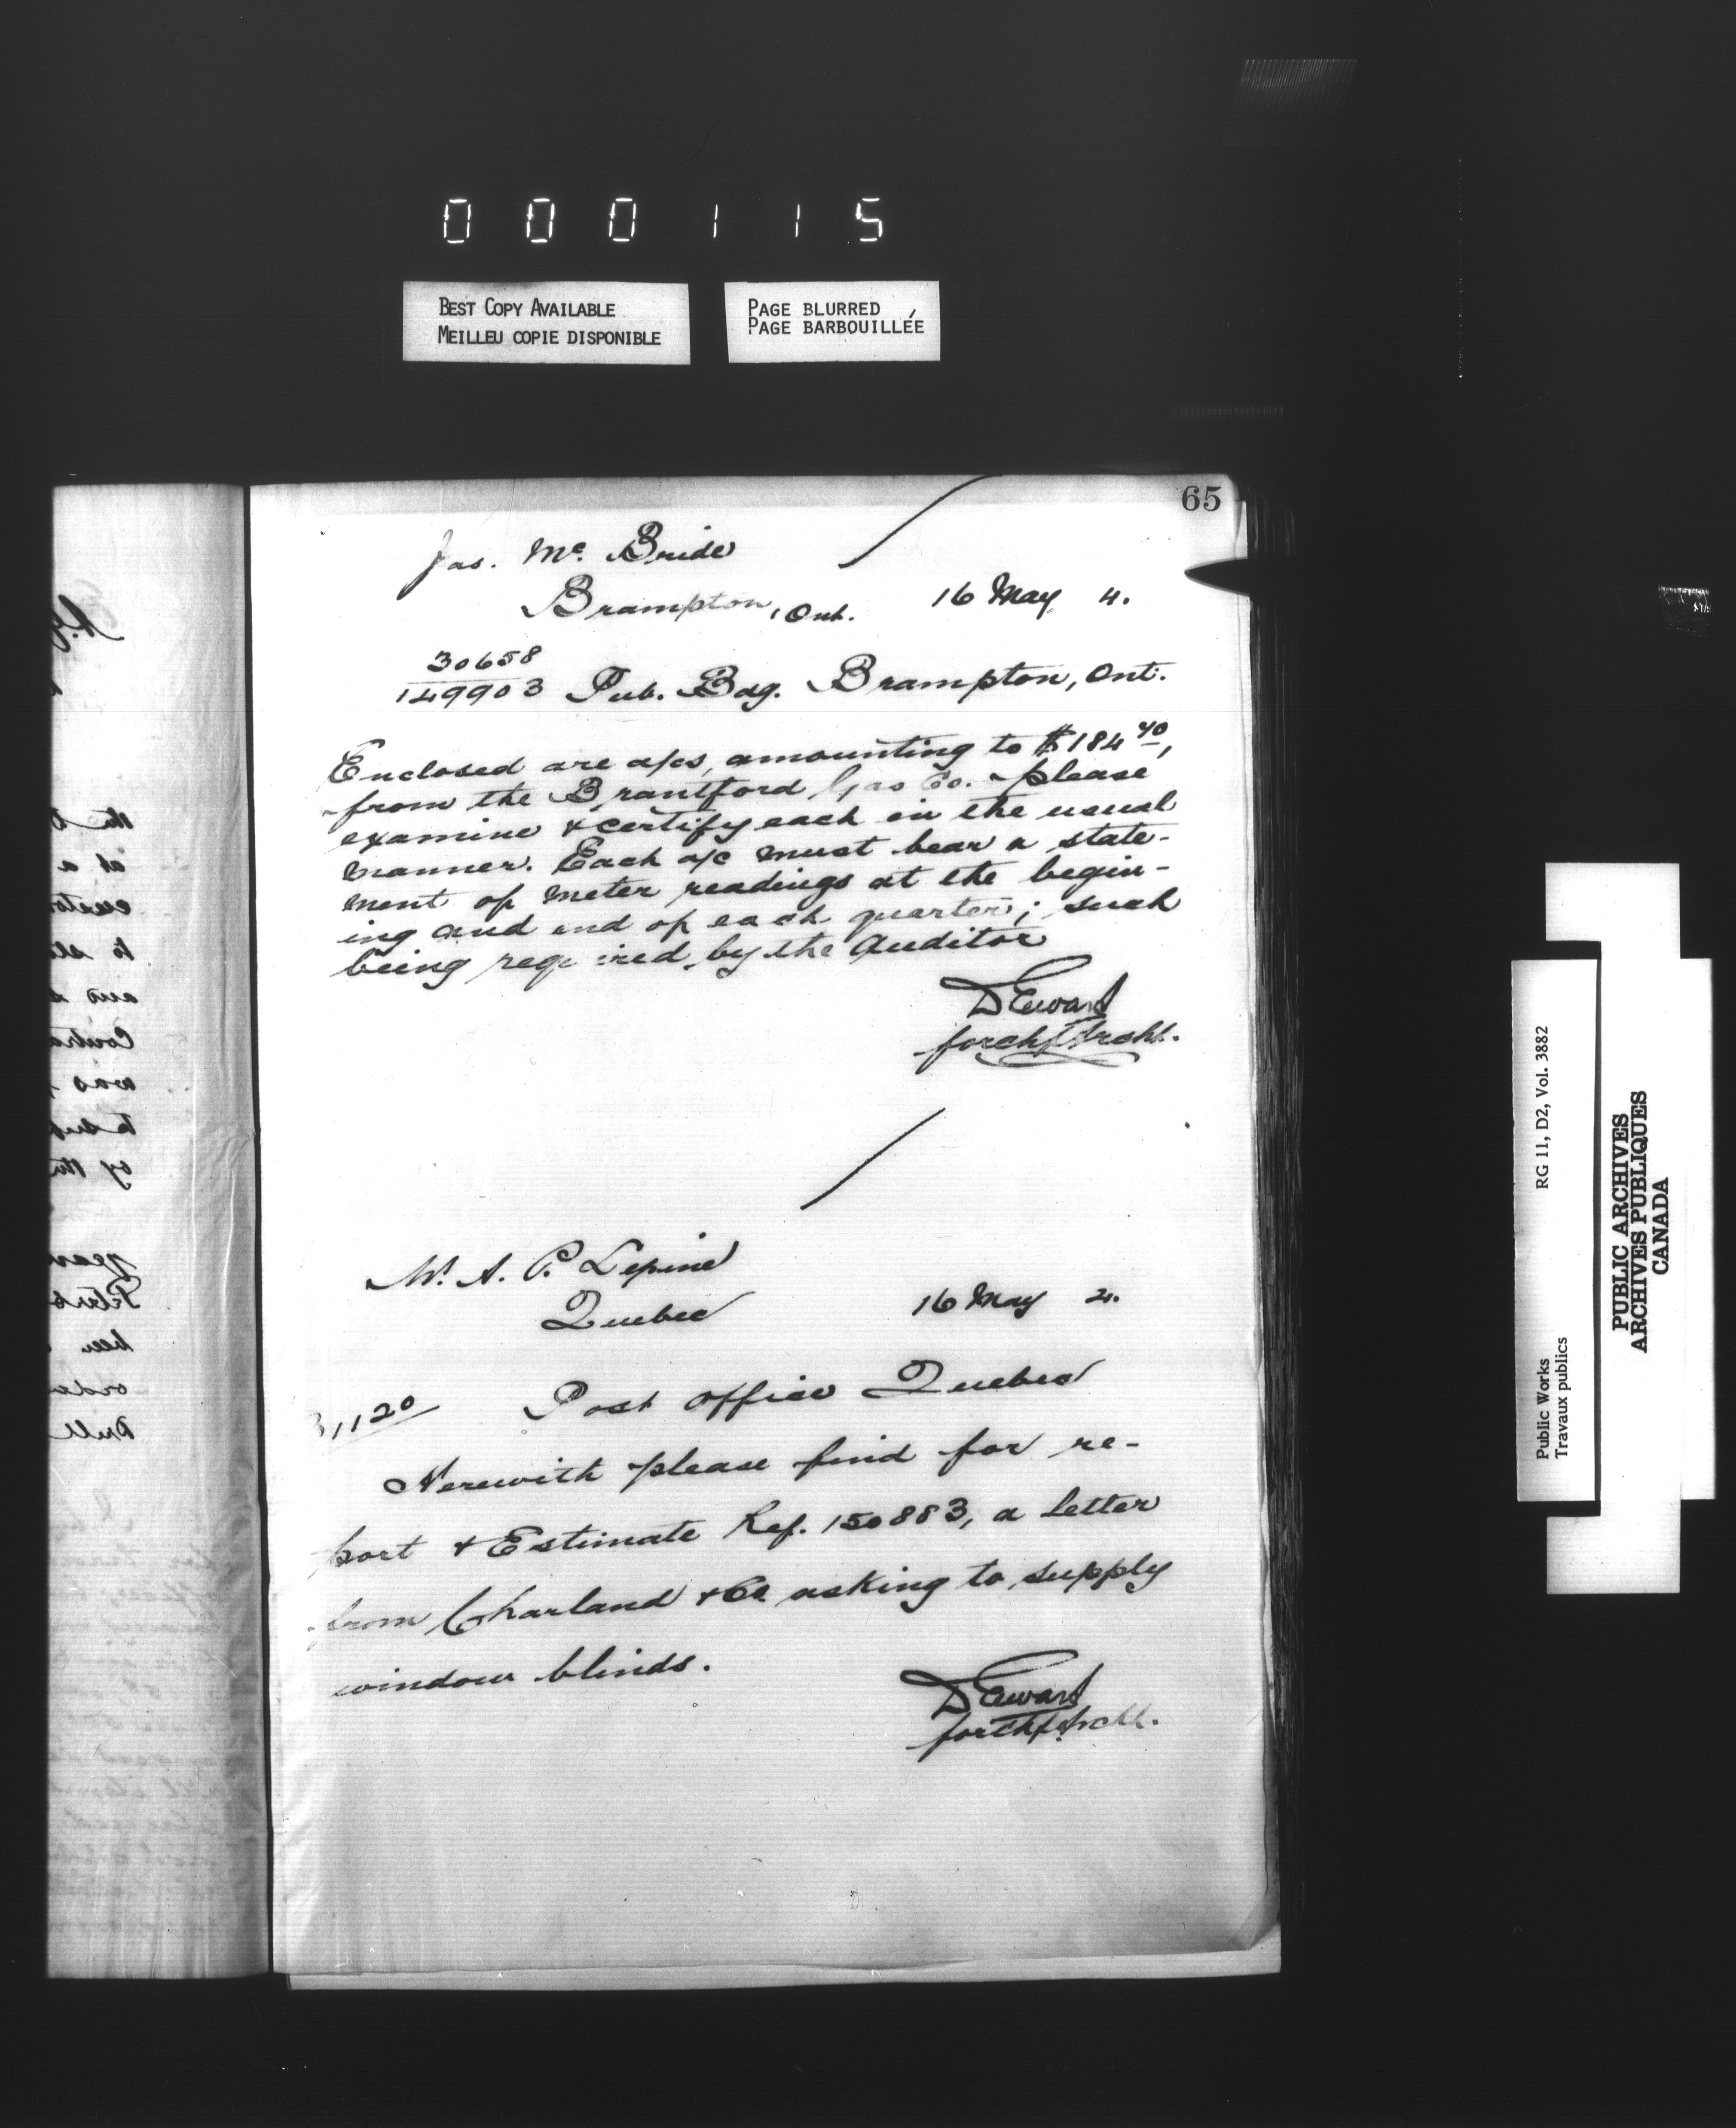 0 0 0 1 1 5
BEST COPY AVAILABLE
MEILLEU COPIE DISPONIBLE
PAGE BLURRED
PAGE BARBOUILLÉE
65
Jas. Mc. Bride
Brampton, Ont. 16 May 4.
30658
149903 Pub. Bdg. Brampton, Ont.
Enclosed are a/cs, amounting to $184 40,
from the Brantford Gas Co. please
examine & certify each in the usual
manner. Each a/c must bear a state-
ment of meter readings at the begin-
ing and end of each quarter; such
being required by the Auditor
D Ewart
for Chf Archt.
Mr. A. P. Lepine
Quebec 16 May 4.
31120 Post Office Quebec
Herewith please find for re-
port & Estimate Ref. 150883, a letter
from Charland & Co asking to supply
window blinds.
D Ewart
for Chf Archt.
Public Works RG 11, D2, Vol. 3882
Travaux publics
PUBLIC ARCHIVES
ARCHIVES PUBLIQUES
CANADA